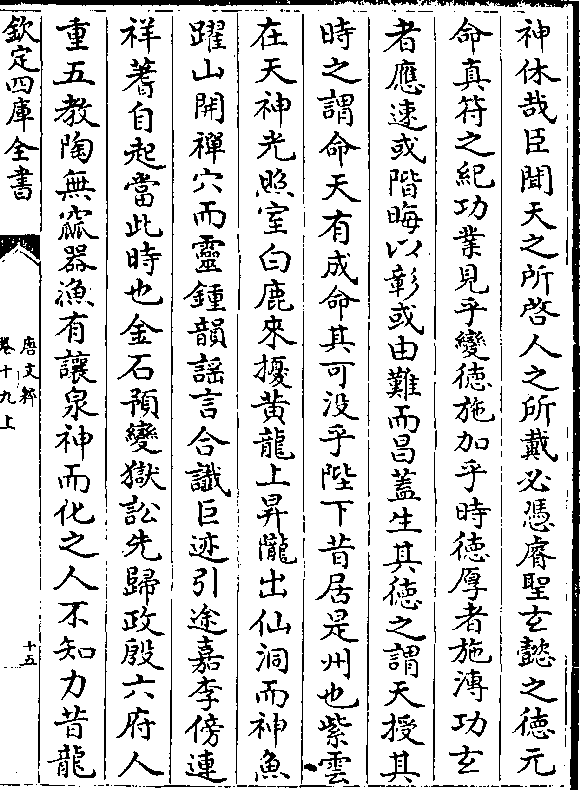 神休哉臣聞天之所啓人之所戴必憑睿聖玄懿之徳元
命真符之紀功業見乎變徳施加乎時徳厚者施溥功玄
者應速或階晦以彰或由難而昌蓋生其徳之謂天授其
時之謂命天有成命其可没乎陛下昔居是州也紫雲
在天神光照室白鹿來擾黄龍上昇隴出仙洞而神魚
躍山開禪穴而靈鍾韻謡言合讖巨迹引途嘉李傍連
祥蓍自起當此時也金石預變獄訟先歸政殷六府人
重五教陶無窳器漁有讓泉神而化之人不知力昔龍
欽定四庫全書
唐文粹
卷十九上
十五